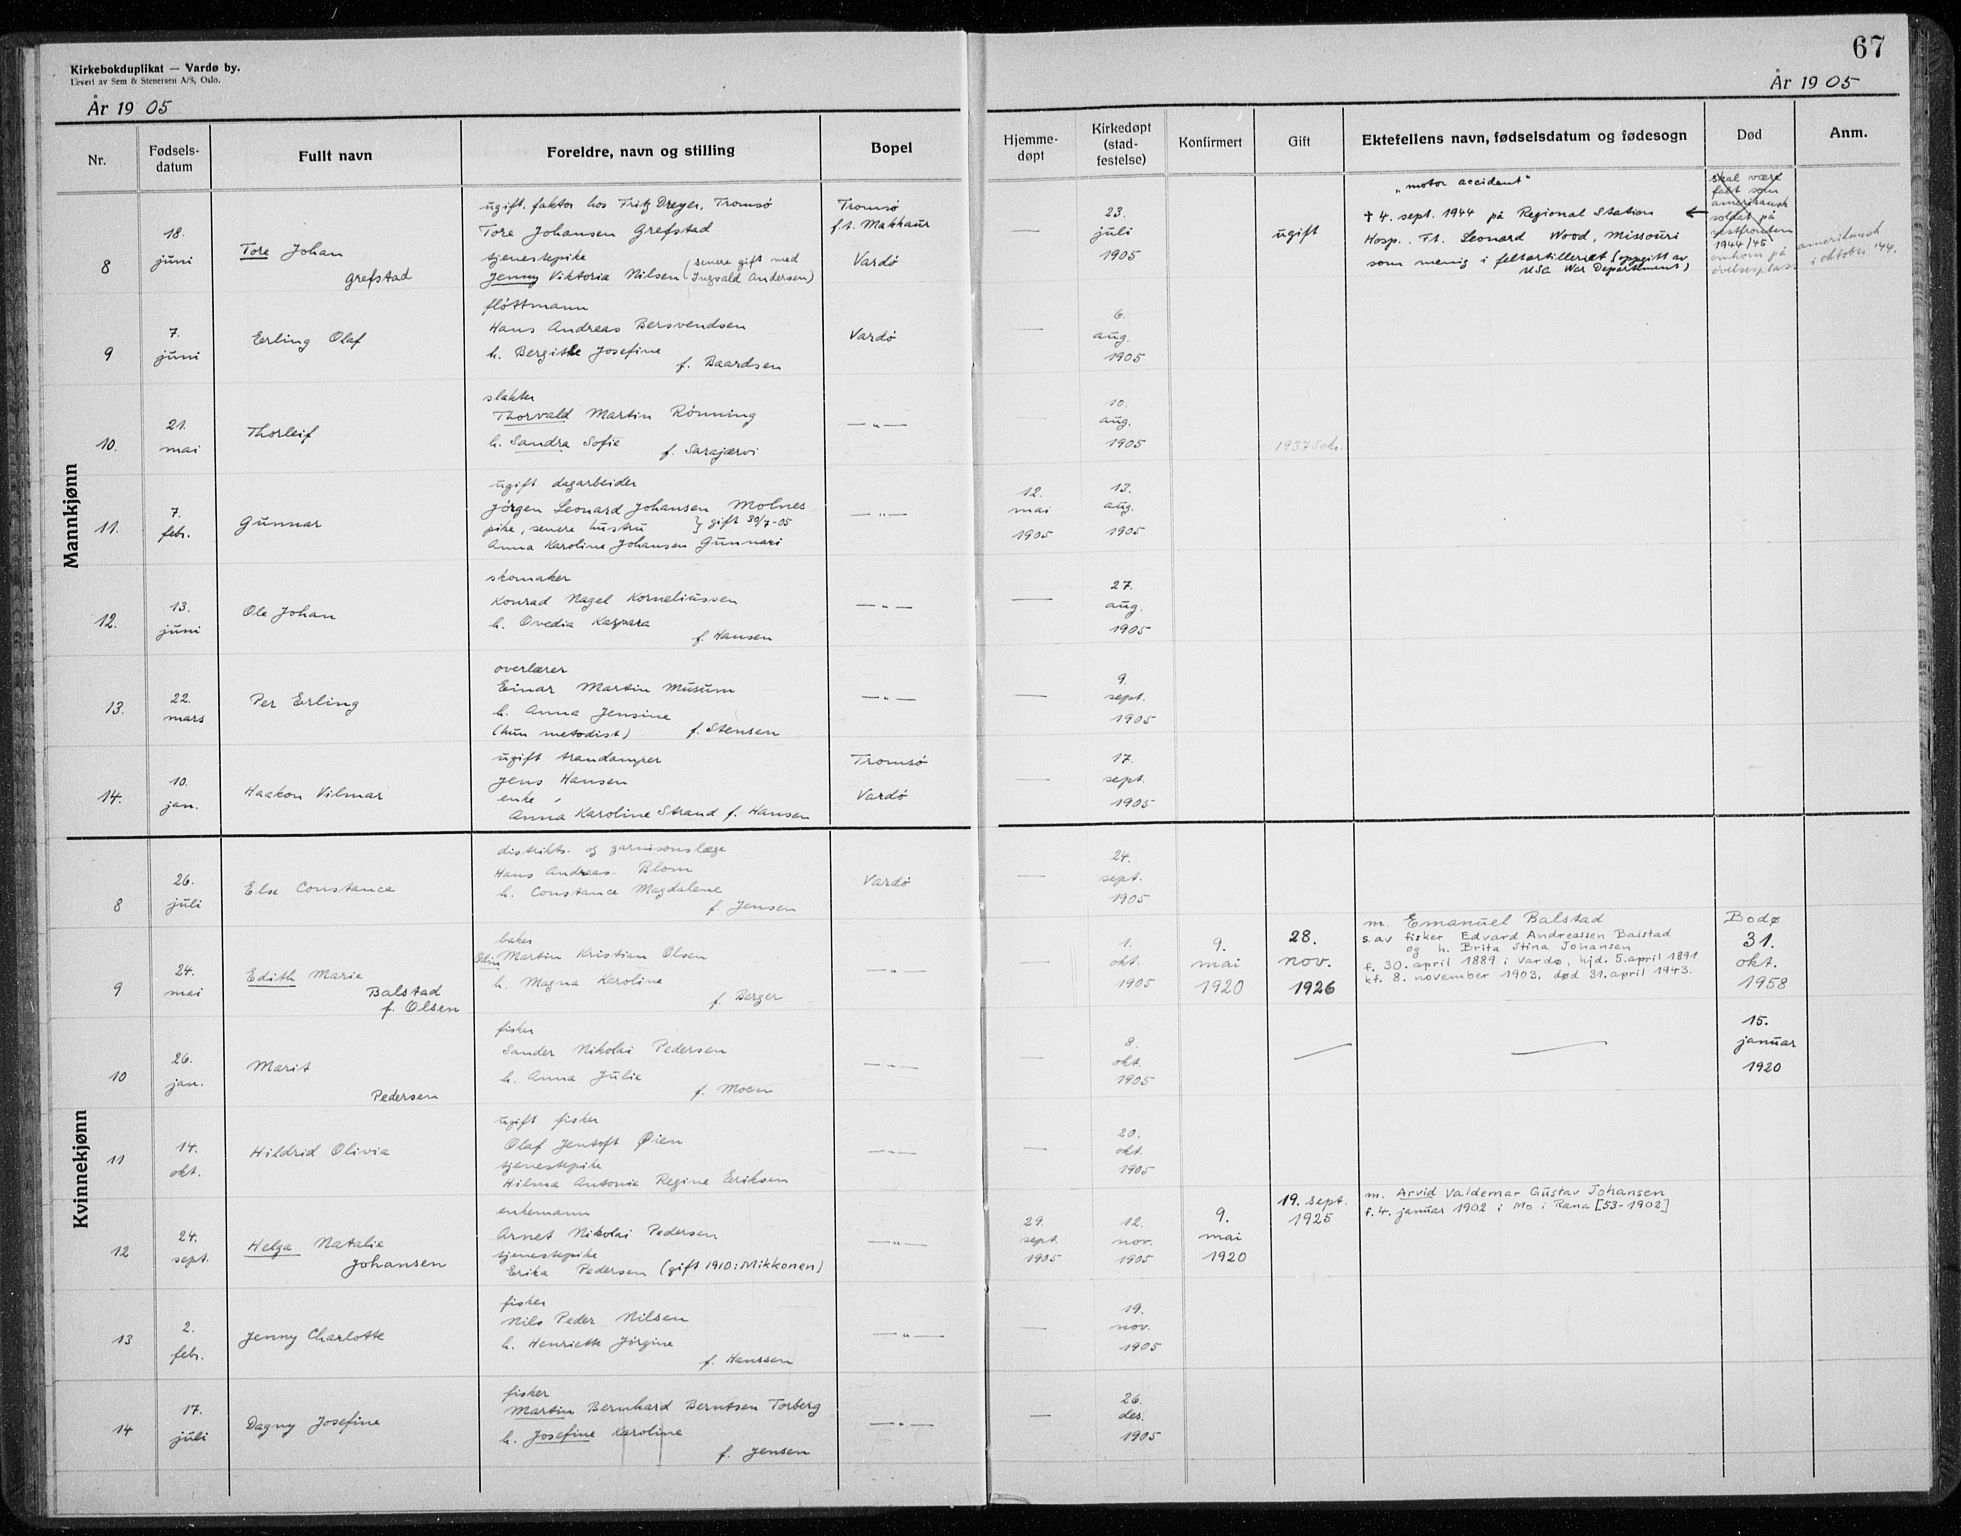 67
Kirkebokduplikat — Vardø by.
Levert av Sem & Stenersen A/S, Oslo.
År 19 05
År 19 05
Nr.
Fødsels-
datum
Fullt navn
Foreldre, navn og stilling
Bopel
Hjemme-
døpt
Kirkedøpt
(stad-
festelse)
Konfirmert
Gift
Ektefellens navn, fødselsdatum og fødesogn
Død
Anm.
Mannkjønn
8
18.
juni
Tore Johan
Grefstad
ugift. faktor hos Fritz Dreyer, Tromsø
Tore Johansen Grefstad
tjenestepike
Jenny Viktoria Nilsen (senere gift med
Ingvald Andersen)
Tromsø
f.t. Makkaur
Vardø
—
23.
juli
1905
ugift
„motor accident"
† 4. sept. 1944 på Regional Station
Hosp., Ft. Leonard Wood, Missouri
som menig i feltartilleriet (oppgitt av
USA War Departement)
skal være
falt som
amerikansk
soldat på
vestfronten
1944/45
omkom på
øvelsesplass
amerikansk
i oktober '44.
9
7.
juni
Erling Olaf
fløttmann
Hans Andreas Bersvendsen
h. Bergitte Josefine
f. Baardsen
Vardø
—
6.
aug.
1905
10.
21.
mai
Thorleif
slakter
Thorvald Martin Rønning
h. Sandra Sofie
f. Sarajærvi
— „ —
—
10.
aug.
1905
1937 Sokn.
11.
7.
febr.
Gunnar
ugift dagarbeider
Jörgen Leonard Johansen Molnes
pike, senere hustru } gift 30/7-05
Anna Karoline Johansen Gunnari
— „ —
12.
mai
1905
13.
aug.
1905
12.
13.
juni
Ole Johan
skomaker
Konrad Nagel Korneliussen
h. Ovedia Kaspara
f. Hansen
— „ —
—
27.
aug.
1905
13.
22.
mars
Per Erling
overlærer
Einar Martin Musum
h. Anna Jensine
(hun metodist) f. Stensen
— „ —
—
9.
sept.
1905
14.
10.
jan.
Haakon Vilmar
ugift trandamper
Jens Hansen
enke
Anna Karoline Strand f. Hansen
Tromsø
Vardø
—
17.
sept.
1905
Kvinnekjønn
8
26.
juli
Else Constance
distrikts- og garnisonslæge
Hans Andreas Blom
h. Constance Magdalene
f. Jensen
Vardø
—
24.
sept.
1905
9
24.
mai
Edith Marie
Balstad
f. Olsen
baker
Odin Martin Kristian Olsen
h. Magna Karoline
f. Berger
— „ —
—
1.
okt.
1905
9.
mai
1920
28.
nov.
1926
m. Emanuel Balstad
s. av fisker Edvard Andreassen Balstad
og h. Brita Stina Johansen
f. 30. april 1889 i Vardø, hjd. 5. april 1891
kf. 8. november 1903, død 31. april 1943.
Bodø
31.
okt.
1958
10
26.
jan.
Marit
Pedersen
fisker
Sander Nikolai Pedersen
h. Anna Julie
f. Moen
— „ —
—
8.
okt.
1905
—
—
15.
januar
1920
11
14.
okt.
Hildrid Olivia
ugift fisker
Olaf Jentoft Øien
tjenestepike
Hilma Antonie Regine Eriksen
— „ —
—
20.
okt.
1905
12
24.
sept.
Helga Natalie
Johansen
enkemann
Arnet Nikolai Pedersen
tjenestepike
Erika Pedersen (gift 1910: Mikkonen)
— „ —
29.
sept.
1905
12.
nov.
1905
9.
mai
1920
19. sept.
1925
m. Arvid Valdemar Gustav Johansen
f. 4. januar 1902 i Mo i Rana [53-1902]
13
2.
febr.
Jenny Charlotte
fisker
Nils Peder Nilsen
h. Henriette Jörgine
f. Hanssen
— „ —
—
19.
nov.
1905
14
17.
juli
Dagny Josefine
fisker
Martin Bernhard Berntsen Torberg
h. Josefine Karoline
f. Jensen
— „ —
—
26.
des.
1905